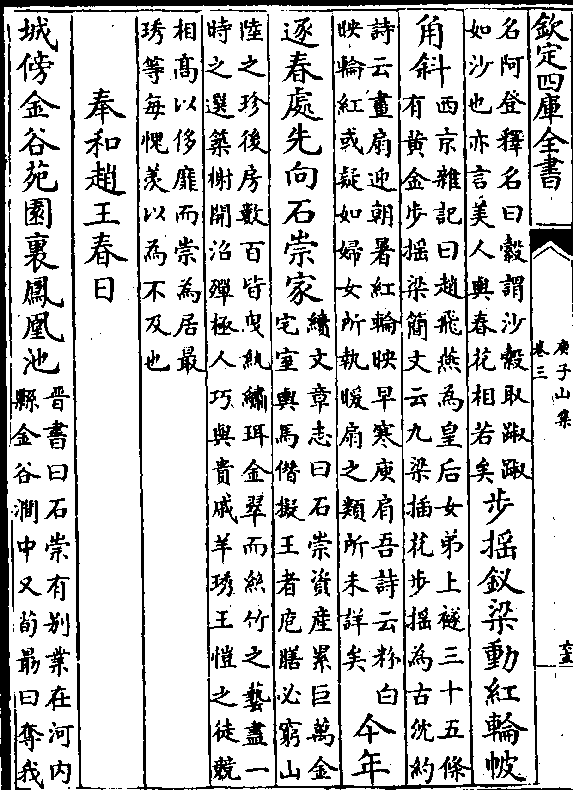 欽定四庫全書
庾子山集
卷三
名阿登釋名曰縠謂沙縠取踧踧
如沙也亦言美人與春花相若矣
步揺釵梁動紅輪帔
角斜
西京雜記曰趙飛燕為皇后女弟上襚三十五條
有黄金步揺梁簡文云九梁插花步揺為古沈約
詩云畫扇迎朝暑紅輪映早寒庾肩吾詩云粉白
映輪紅或疑如婦女所執暖扇之類所未詳矣
今年
逐春處先向石崇家
續文章志曰石崇資産累巨萬金
宅室輿馬僭擬王者庖膳必窮山
陸之珍後房數百皆曳紈繡珥金翠而絲竹之藝盡一
時之選築榭開沼殫極人巧與貴戚羊琇王愷之徒競
相髙以侈靡而崇為居最
琇等每愧羨以為不及也
奉和趙王春日
城傍金谷苑園裏鳳凰池
晉書曰石崇有别業在河内
縣金谷澗中又荀朂曰奪我